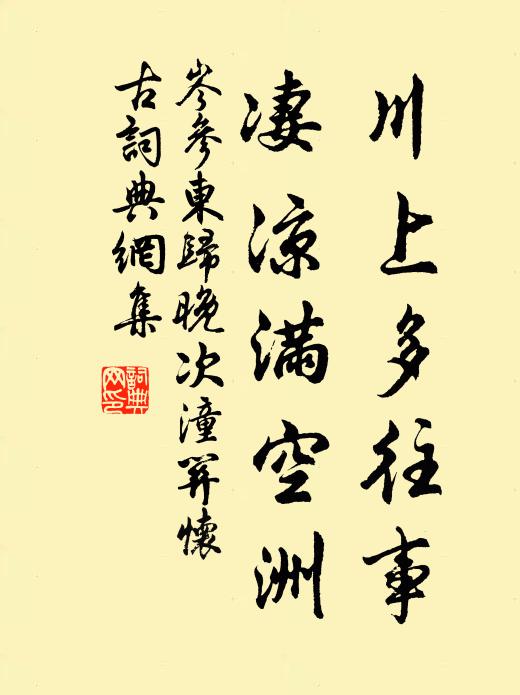 川上多往事
凄涼滿空洲
岑參東歸晚次潼關懷
古詞典網集
詞典
网印